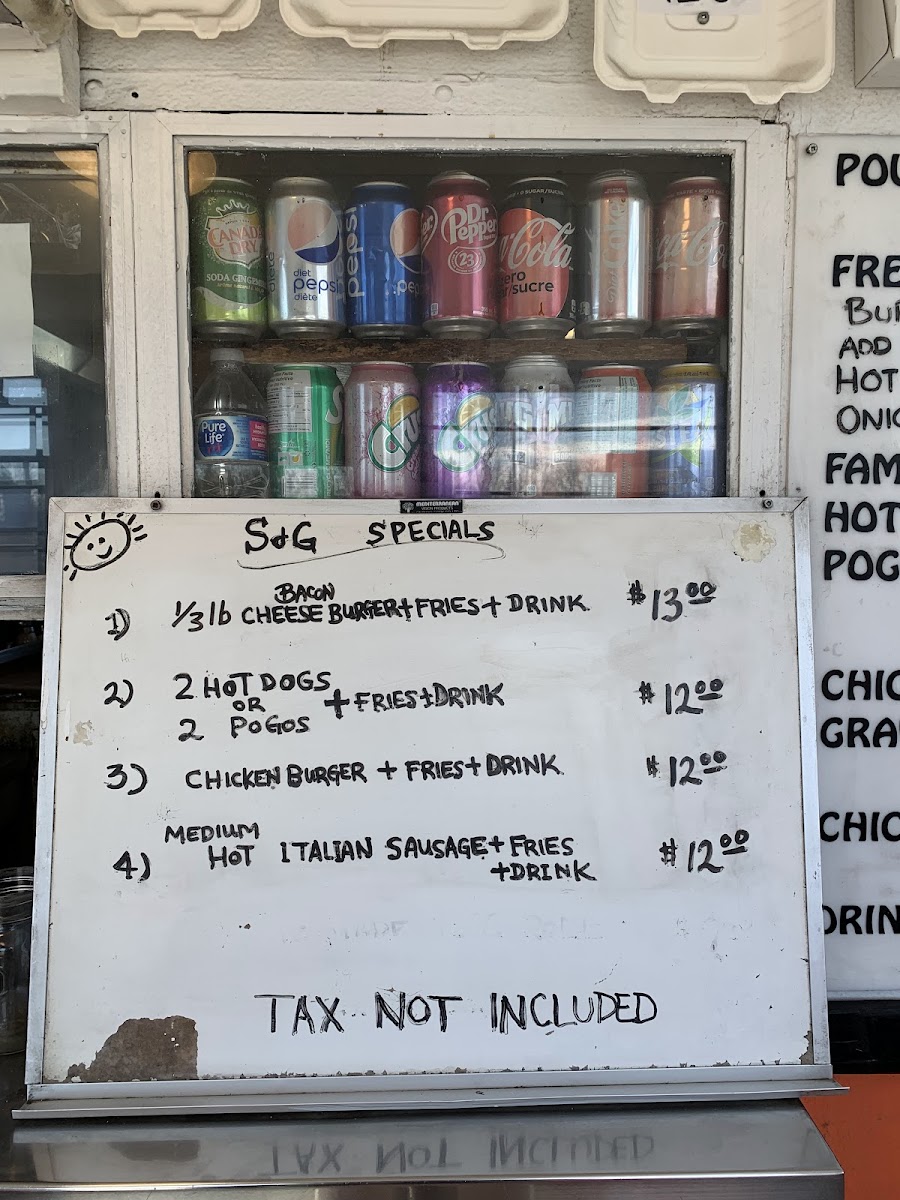 CANADA
DRY
SODA GINGEMBRE
diet
pepsi
diète
pepsi
pepsi
Dr
Pepper
23
Coca-Cola
zero
sucre
Coke
Coca-Cola
Pure
Life
Crush
Crush
MEDITERRANEA
S&G SPECIALS
1) 1/3 lb BACON CHEESE BURGER + FRIES + DRINK $13.00
2) 2 HOT DOGS
OR + FRIES + DRINK $12.00
2 POGOS
3) CHICKEN BURGER + FRIES + DRINK $12.00
MEDIUM
4) HOT ITALIAN SAUSAGE + FRIES $12.00
+ DRINK
TAX NOT INCLUDED
POU
FRE
BUR
ADD
HOT
ONIO
FAM
HOT
POG
CHIC
GRA
CHIC
DRIN